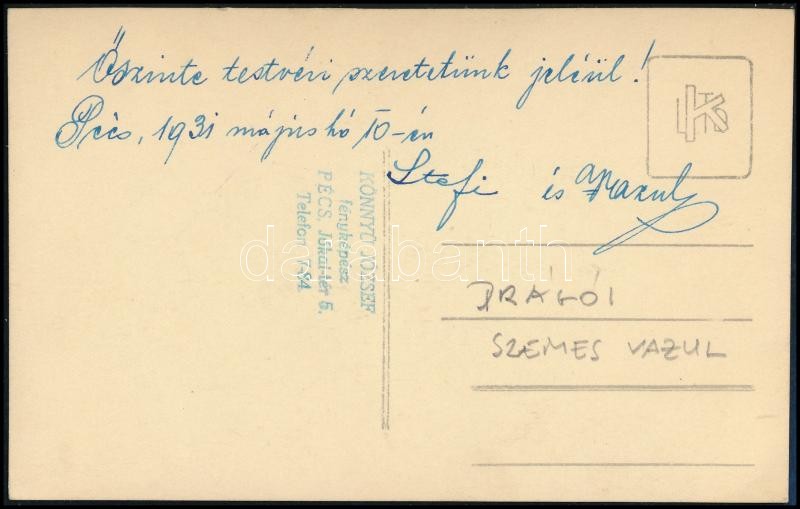 Őszinte testvéri szeretetünk jeléül!
Pécs, 1931 május hó 10-én
Stefi és Vazul
KÖNNYŰ JÓZSEF
fényképész
PÉCS, Jókai-tér 5.
Telefon 7-94.
darabanth
DRÁGÓI
SZEMES VAZUL